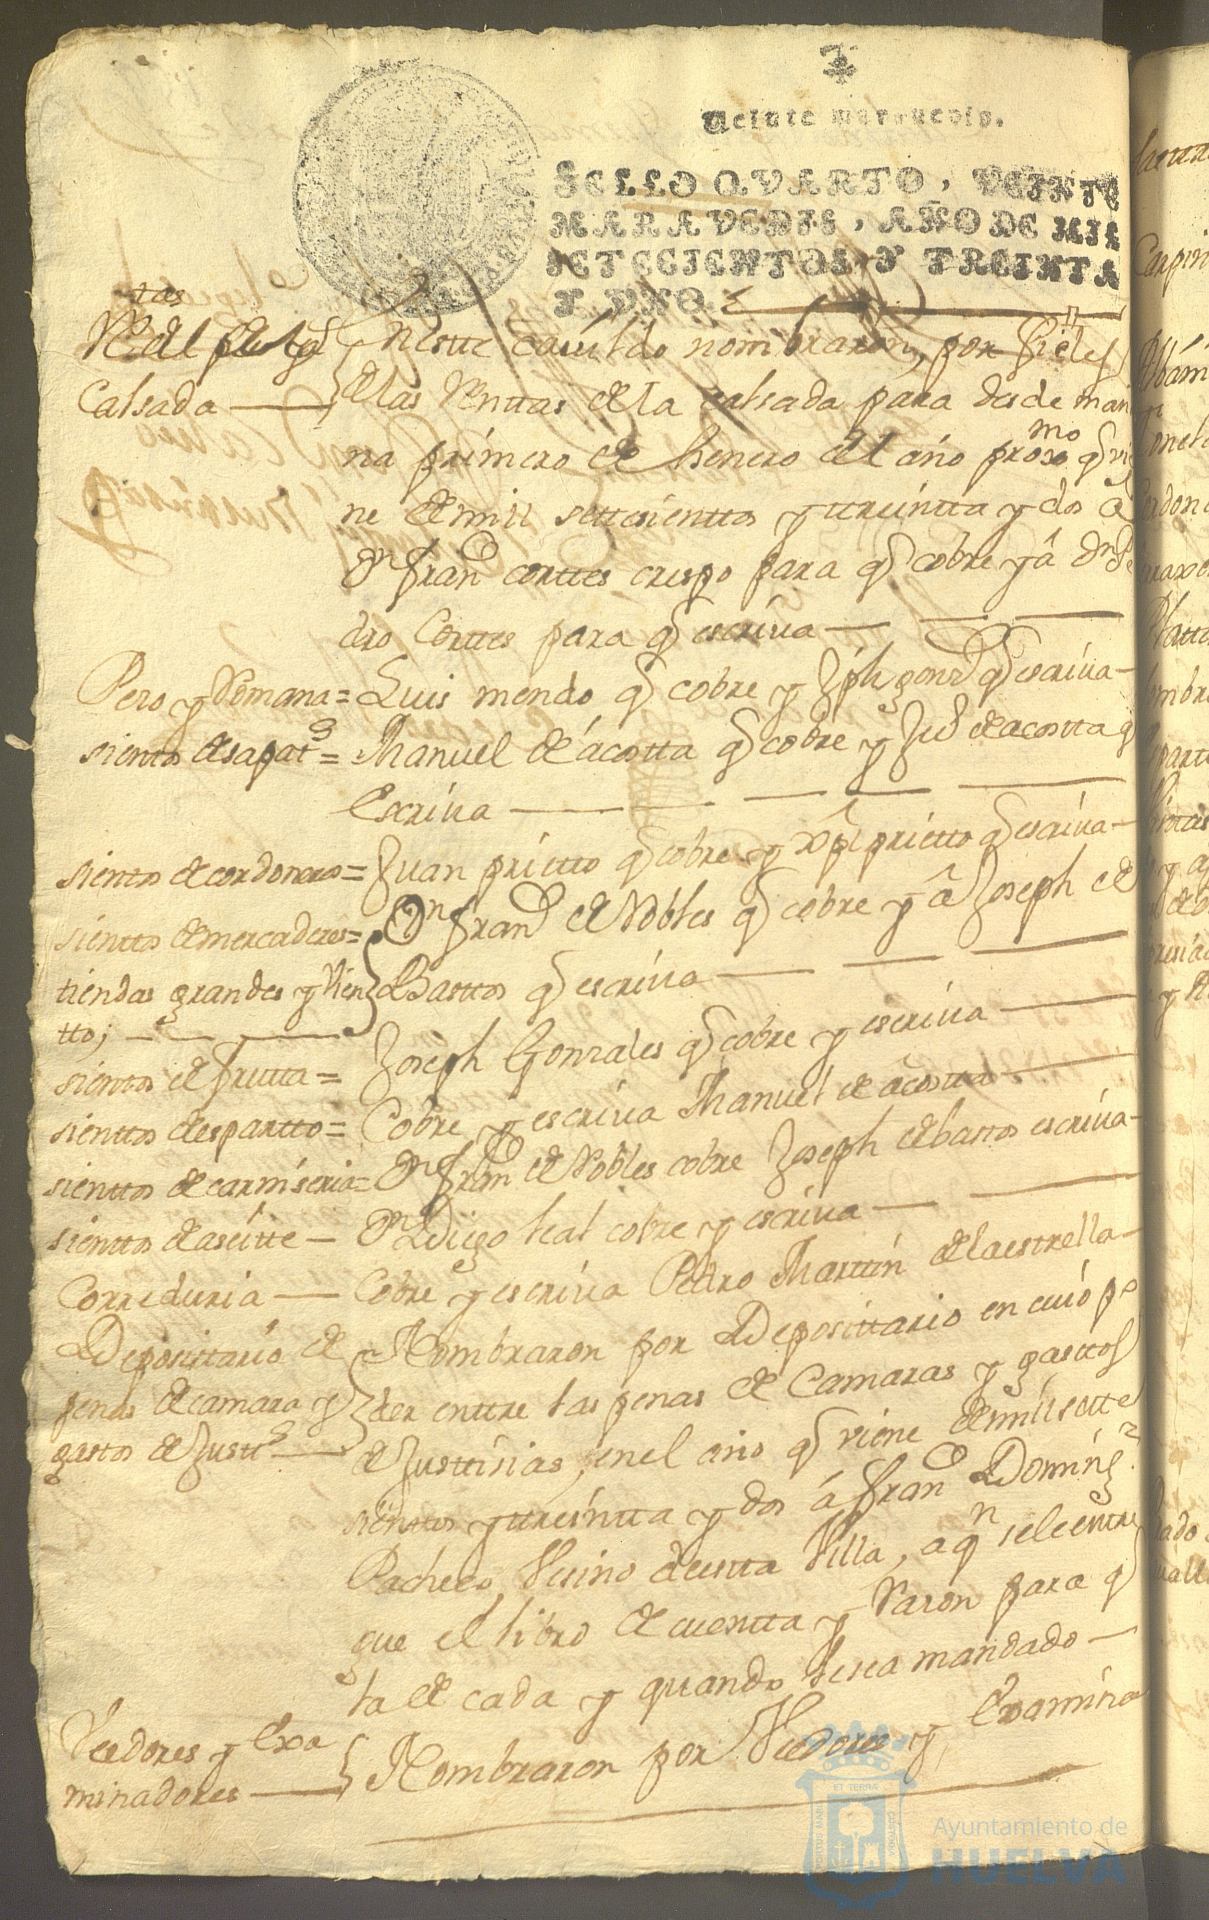 Veinte maravedis.
SELLO QVARTO, VEINTE
MARAVEDIS, AÑO DE MIL
SETECIENTOS Y TREINTA
Y UNO.
Calsada
Eneste Cavildo nombraron, por fieles
de las Renttas de la calsada para desde maña
na primero de henero del año proxmo q vie
ne de mill settesienttos y ttreintta y dos a
Dn Franco corttes crespo para q cobre y â Dn Pe
dro Corttes para q escriva
Pero y Romana = Luis mendo q cobre y Jph gonz q escriva
sientto de sapatos = Manuel de acostta q cobre y Jud de acostta q
Escriva
sientto de cordonero = Juan priетto q cobre y Xptl prietto q escriva
sientto de mercaderes = Dn Franco de Robles q cobre y â Joseph de
tiendas grandes y Vien
tto;
Basttos q escriva
sientto de frutta = Joseph Gonzales q cobre y escriva
sientto de espartto = Cobre y escriva Manuel de acostta
sientto de carniseria = Dn Fran de Robles cobre Joseph de bastos escriva
sientto de aseitte — Dn Diego leal cobre y escriva
Correduria — Cobre y escriva Pedro Marttin de la estrella
Deposittario de
penas de camara y
gastos de Justta
Nombraron por Deposittario en cuio po
der enttre las penas de Camaras y gasttos
de Justtisias, en el año q viene de mill sette
sienttos y ttreintta y dos á Franco Doming
Pacheco, Vesino de estta Villa, a qn se le enttre
gue el libro de cuentta y Rason para q
la de cada y quando le sea mandado
Veedores y Exa
minadores
Nombraron por Veedores y Examina
Ayuntamiento de
HUELVA